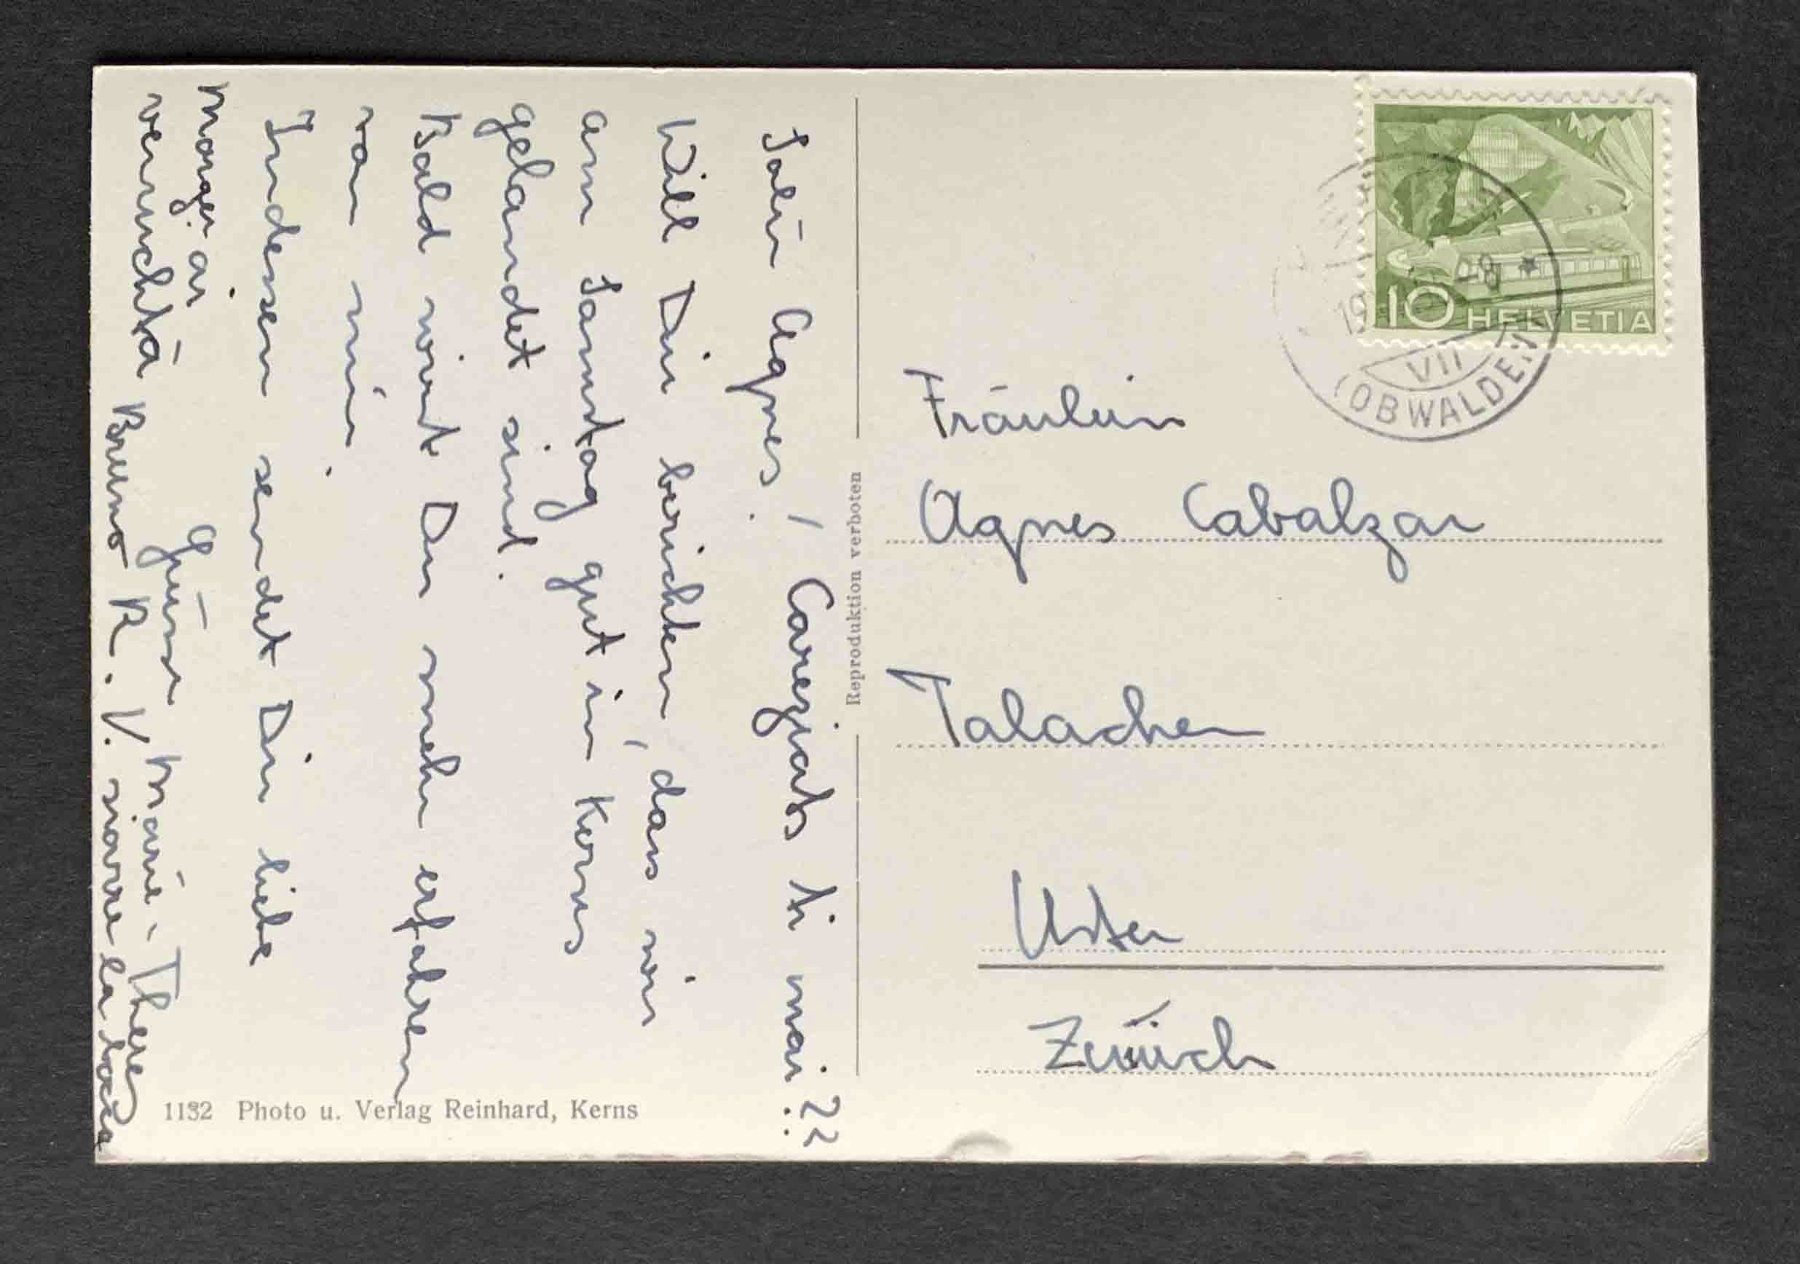 Salü Agnes! Caregiats ti mai??
Will Dir berichten, dass wir
am Samstag gut in Kerns
gelandet sind.
Bald wirst Du mehr erfahren
von mir.
Indessen sendet Dir liebe
Grüsse Marie-Theres
Morgen
Bruno R. V.
Reproduktion verboten
1132 Photo u. Verlag Reinhard, Kerns
10 HELVETIA
VII
(OBWALDEN)
Fräulein
Agnes Cabalzar
Talacher
Uster
Zürich